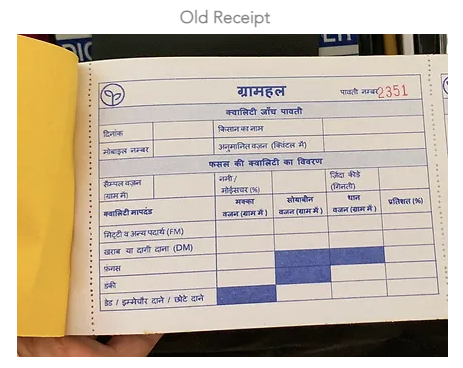 Old Receipt
ग्रामहल
पावती नम्बर 2351
क्वालिटी जाँच पावती
दिनांक
किसान का नाम
मोबाइल नम्बर
अनुमानित वज़न (क्विंटल में)
फसल की क्वालिटी का विवरण
सैम्पल वज़न (ग्राम में)
नमी / मोईस्चर (%)
ज़िंदा कीड़े (गिनती)
क्वालिटी मापदंड
मक्का वज़न (ग्राम में)
सोयाबीन वज़न (ग्राम में)
धान वज़न (ग्राम में)
प्रतिशत (%)
मिट्टी व अन्य पदार्थ (FM)
खराब या दागी दाना (DM)
फंगस
डंकी
डेड / इम्मेच्यौर दाने / छोटे दाने